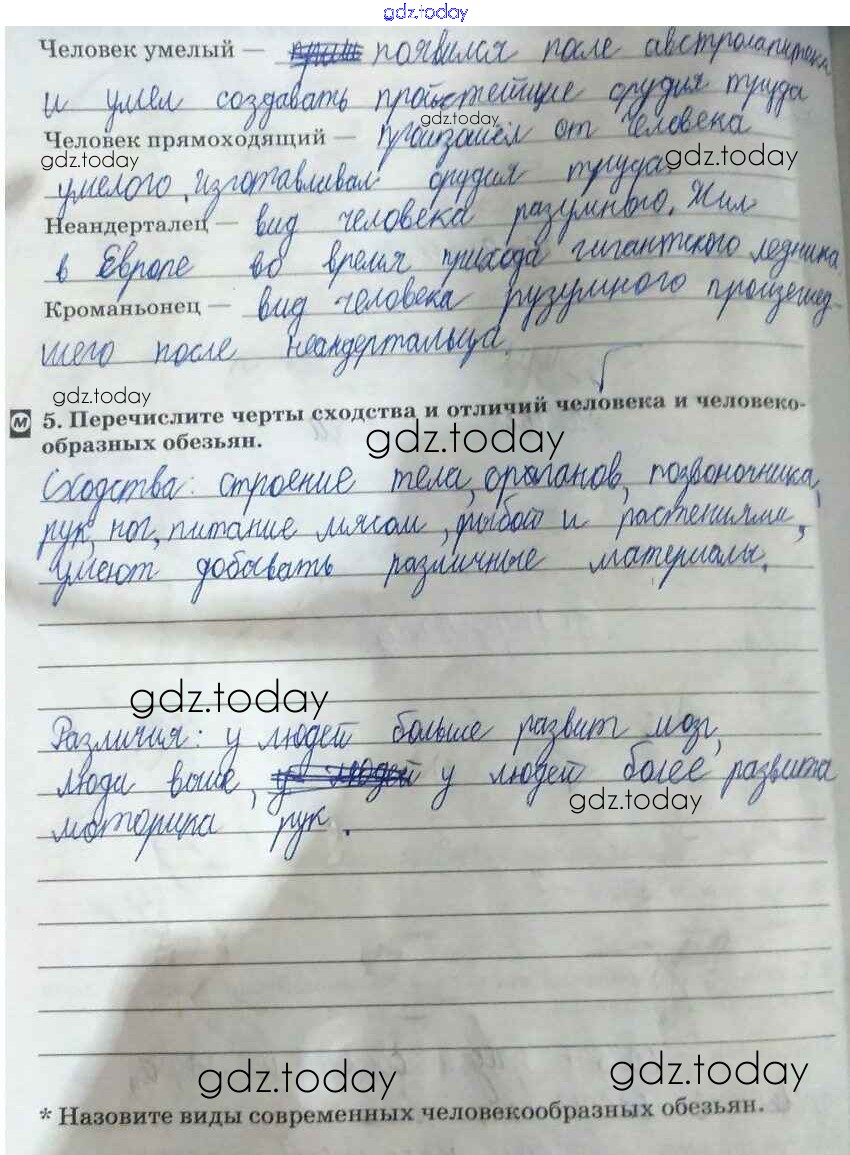 gdz.today
Человек умелый — появился после австролапитека
и умел создавать простейшие орудия труда
gdz.today
Человек прямоходящий — произошёл от человека
gdz.today gdz.today
умелого, изготавливал орудия труда
Неандерталец — вид человека разумного. Жил
в Европе во время прихода гигантского ледника
Кроманьонец — вид человека рузумного произошед-
шего после неандертальца.
gdz.today
м 5. Перечислите черты сходства и отличий человека и человеко-
образных обезьян.
gdz.today
Сходства: строение тела, органов, позвоночника,
рук, ног, питание мясом, рыбой и растениями,
умеют добывать различные материалы.
gdz.today
Различия: у людей больше развит мозг,
люди выше, у людей более развита
gdz.today
моторика рук.
gdz.today gdz.today
* Назовите виды современных человекообразных обезьян.